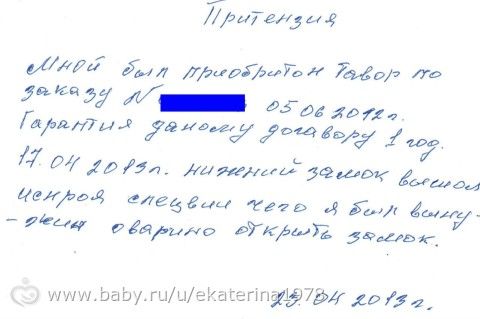 Притензия
Мной был приобритон тавор по
заказу N 05 06 2012г.
Гарантия даному догавору 1 год.
17.04 2013г. нижний замок вышол
искроя спецвии чего я был выну-
-жин оварино открыть замок.
23.04 2013г.
www.baby.ru/u/ekaterina1978